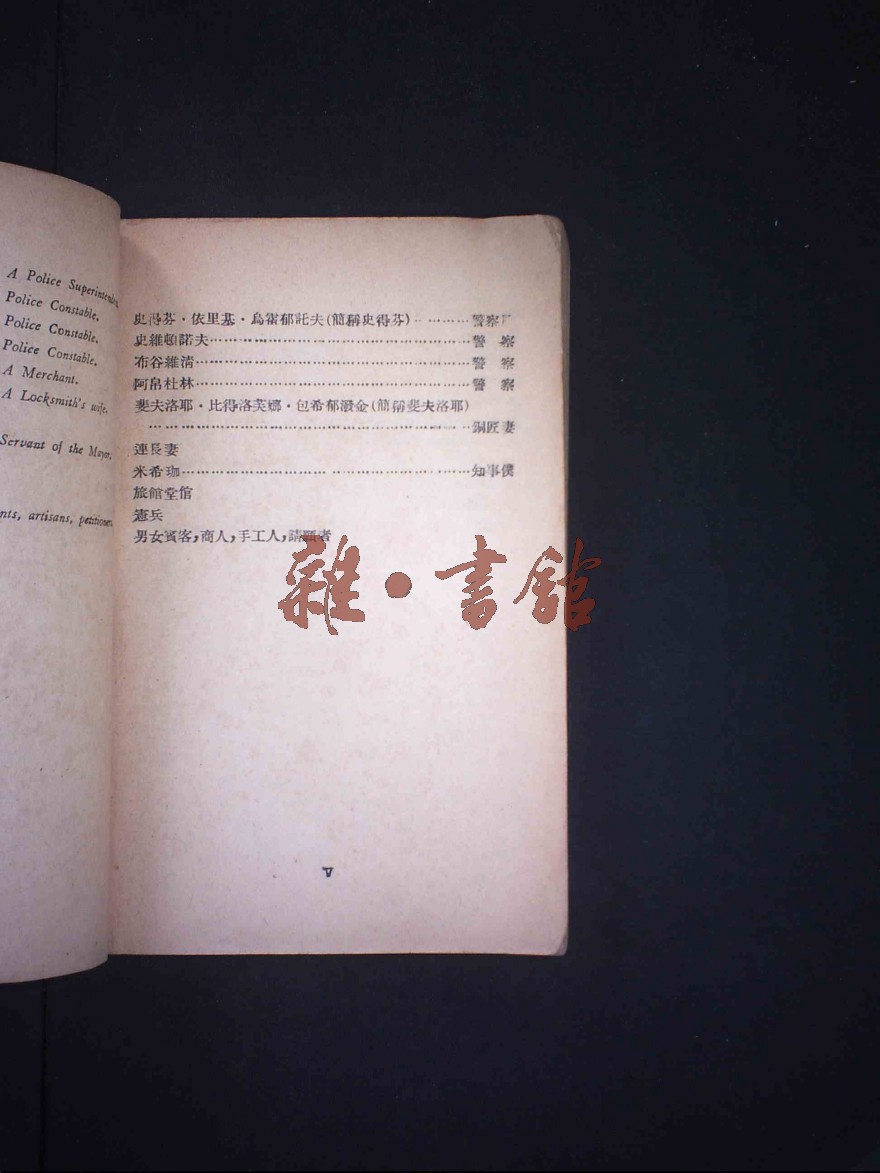 A Police Superintenden
Police Constable.
Police Constable.
Police Constable.
A Merchant.
A Locksmith's wife.
Servant of the Mayor.
nts, artisans, petitioner
史得芬·依里基·烏爾郁託夫(簡稱史得芬)…………警察
史維頓諾夫…………………………………………警 察
布谷維淸……………………………………………警 察
阿帛杜林……………………………………………警 察
斐夫洛耶·比得洛芙娜·包希郁潑金(簡稱斐夫洛耶)
……………………………………………………銅匠妻
連長妻
米希珈………………………………………………知事僕
旅館堂倌
憲兵
男女賓客,商人,手工人,請願者
雜·書館
V